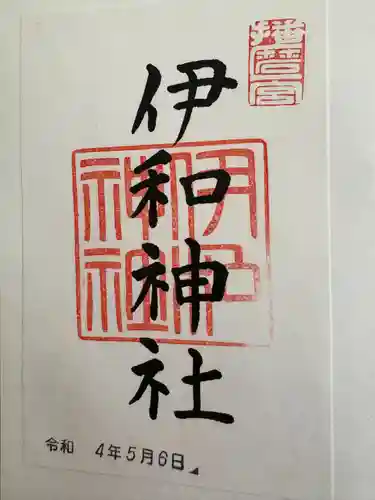 播磨宮
伊和神社
伊和神社
令和 4年5月6日